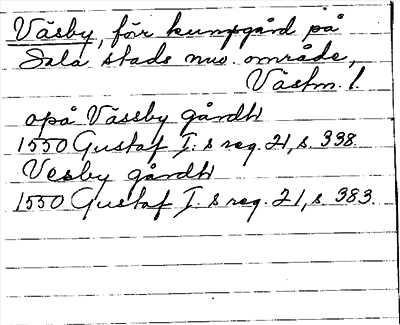 Väsby, för kungsgård på
Sala stads nuv. område,
Västm. l.
opå Vässby gårdh
1550 Gustaf I:s reg. 21, s. 338.
Vesby gårdh
1550 Gustaf I:s reg. 21, s. 383.